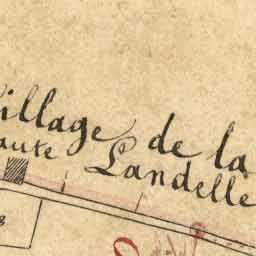 illage de la
aute Landelle
8